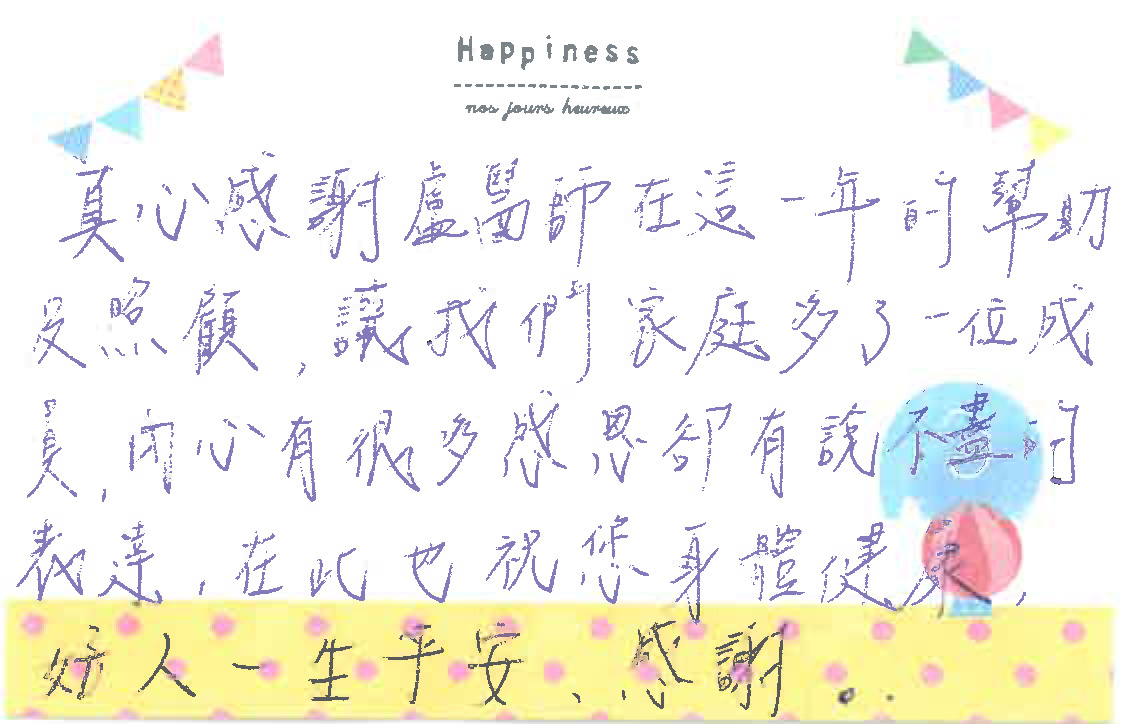 Happiness
nos jours heureux
真心感謝盧醫師在這一年的幫助
及照顧,讓我們家庭多了一位成
員,內心有很多感恩卻有說不盡的
表達,在此也祝您身體健康,
好人一生平安、感謝...